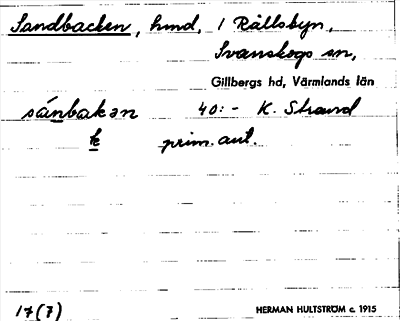 Sandbacken, hmd, i Rällsbyn,
Svanskogs sn,
Gillbergs hd, Värmlands län
sánbakən 40:- K. Strand
k prim. aut.
17(7) HERMAN HULTSTRÖM c. 1915